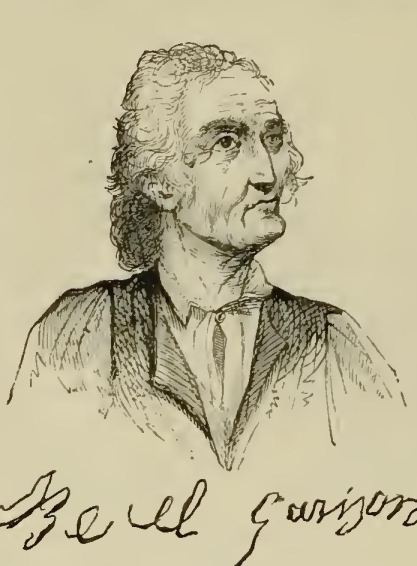 Be ell garizon